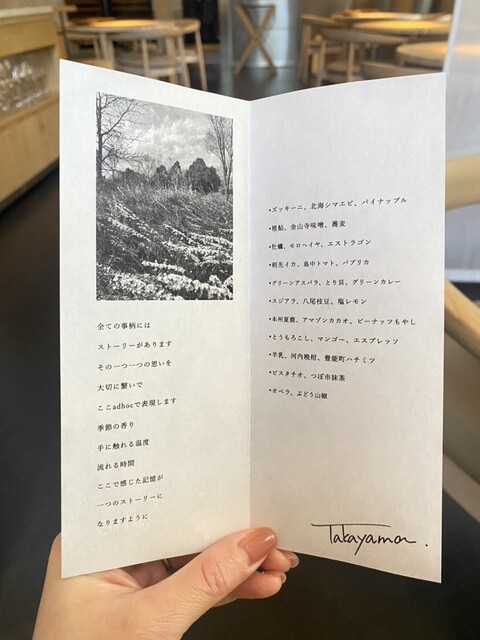 全ての事柄には
ストーリーがあります
その一つ一つの思いを
大切に繋いで
ここadhocで表現します
季節の香り
手に触れる温度
流れる時間
ここで感じた記憶が
一つのストーリーに
なりますように
•ズッキーニ、北海シマエビ、パイナップル
•稚鮎、金山寺味噌、蕎麦
•牡蠣、モロヘイヤ、エストラゴン
•剣先イカ、島中トマト、パプリカ
•グリーンアスパラ、とり貝、グリーンカレー
•スジアラ、八尾枝豆、塩レモン
•本州夏鹿、アマゾンカカオ、ピーナッツもやし
•とうもろこし、マンゴー、エスプレッソ
•羊乳、河内晩柑、豊能町ハチミツ
•ピスタチオ、つぼ市抹茶
•オペラ、ぶどう山椒
Takayama.